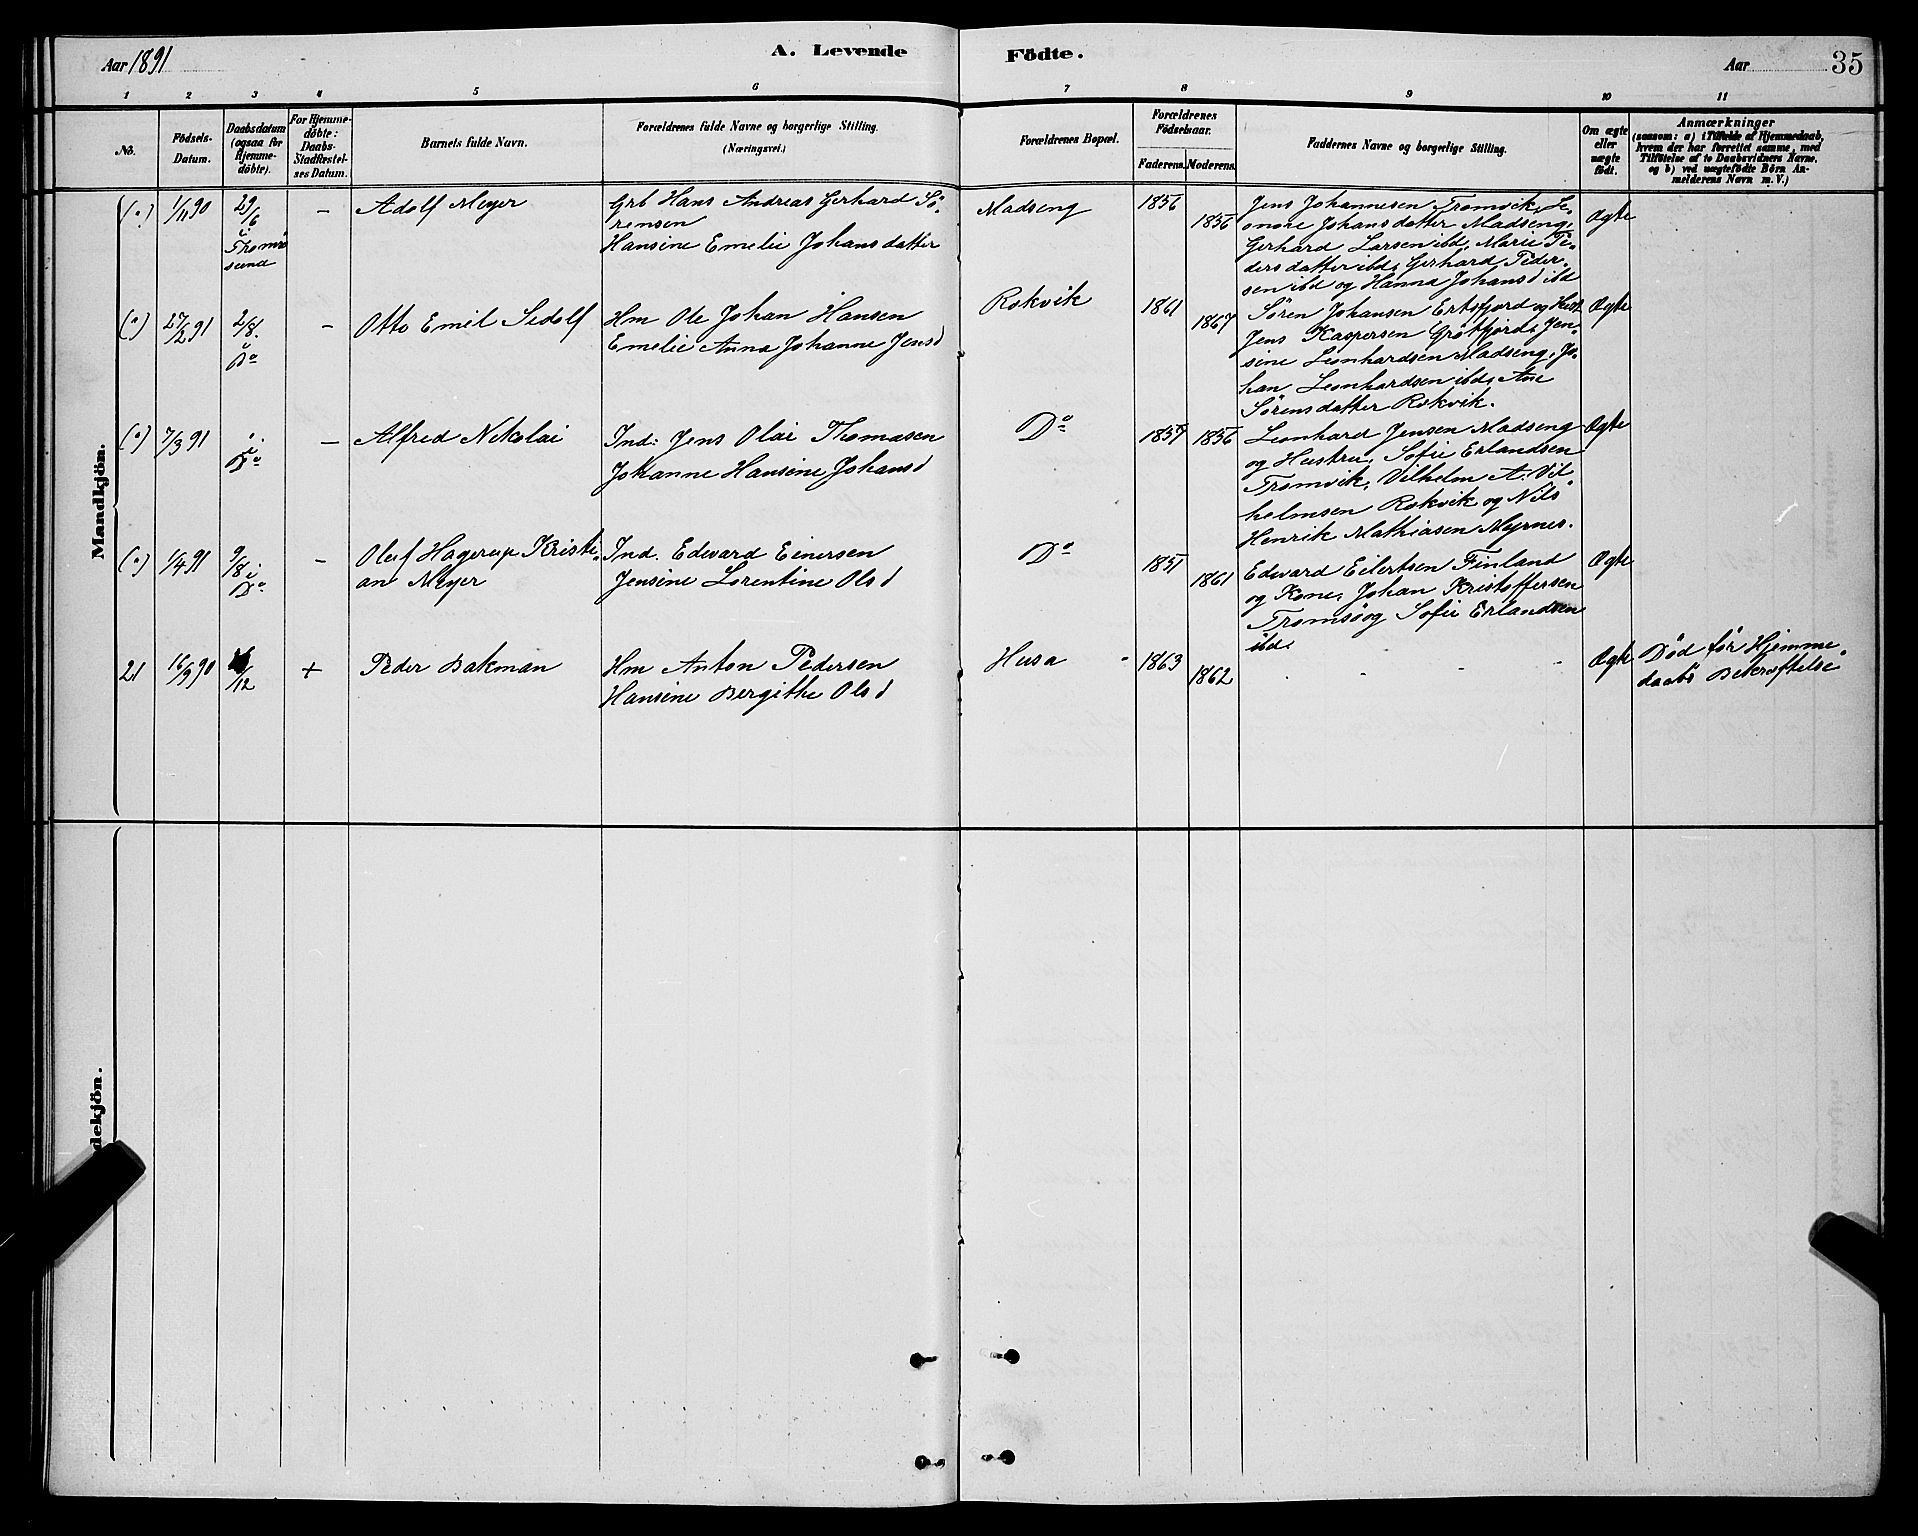 Aar 1891
A. Levende
Födte.
Aar
35
1 2 3 4 5 6 7 8 9 10 11
No.
Födsels-
Datum.
Daabsdatum
(ogsaa for
Hjemme-
döbte).
For Hjemme-
döbte:
Daabs-
Stadfæstel-
ses Datum.
Barnets fulde Navn.
Forældrenes fulde Navne og borgerlige Stilling.
(Næringsvei.)
Forældrenes Bopæl.
Forældrenes
Födselsaar.
Faderens. Moderens.
Faddernes Navne og borgerlige Stilling.
Om ægte
eller
uægte
født.
Anmærkninger
(saasom: a) i Tilfælde af Hjemmedaab,
hvem der har forrettet samme, med
Tilföielse af to Daabsvidners Navne,
og b) ved uægtefödte Börn An-
melderens Navn m. V.)
Mandkjön.
(o)
1/11 90
29/6
i
Tromsö
sund
–
Adolf Meyer
Grb Hans Andreas Gerhard Sö-
rensen
Hansine Emelie Johansdatter
Madseng
1856
1856
Jens Johannesen Tromvik, Le-
onore Johansdatter Madseng,
Gerhard Larsen ibd, Marie Pe-
dersdatter ibd, Gerhard Peder-
sen ibd og Hanna Johansd ibd
Ægte
(o)
27/2 91
2/8.
i
Do
–
Otto Emil Sedolf
Hm Ole Johan Hansen
Emelie Anna Johanne Jensd
Rekvik
1861
1867
Søren Johansen Ertsfjord og Hust
Jens Kaspersen Grøtfjord, Jen-
sine Leonhardsen Madseng, Jo-
han Leonhardsen ibd, Ane
Sörensdatter Rekvik.
Ægte
(o)
7/3 91
i
Do
–
Alfred Nikolai
Ind: Jens Olai Thomasen
Johanne Hansine Johansd
Do
1857
1856
Leonhard Jensen Madseng
og Hustru, Sofie Erlandsen
Tromvik, Vilhelm A. Vil
helmsen Rekvik og Nils
Henrik Mathiasen Myrnes.
Ægte
(o)
1/4 91
9/8 i
Do
–
Oluf Hagerup Kristi-
an Meyer
Ind. Edvard Einersen
Jensine Lorentine Olsd
Do
1851
1861
Edvard Eilertsen Finland
og Kone, Johan Kristoffersen
Tromsö og Sofie Erlandsen
ibd.
Ægte
21
16/9 90
/12
+
Peder Bakman
Hm Anton Pedersen
Hansine Bergithe Olsd
Husa
1863
1862
Ægte
Død før Hjemme-
daabs Bekræftelse
dekjön.